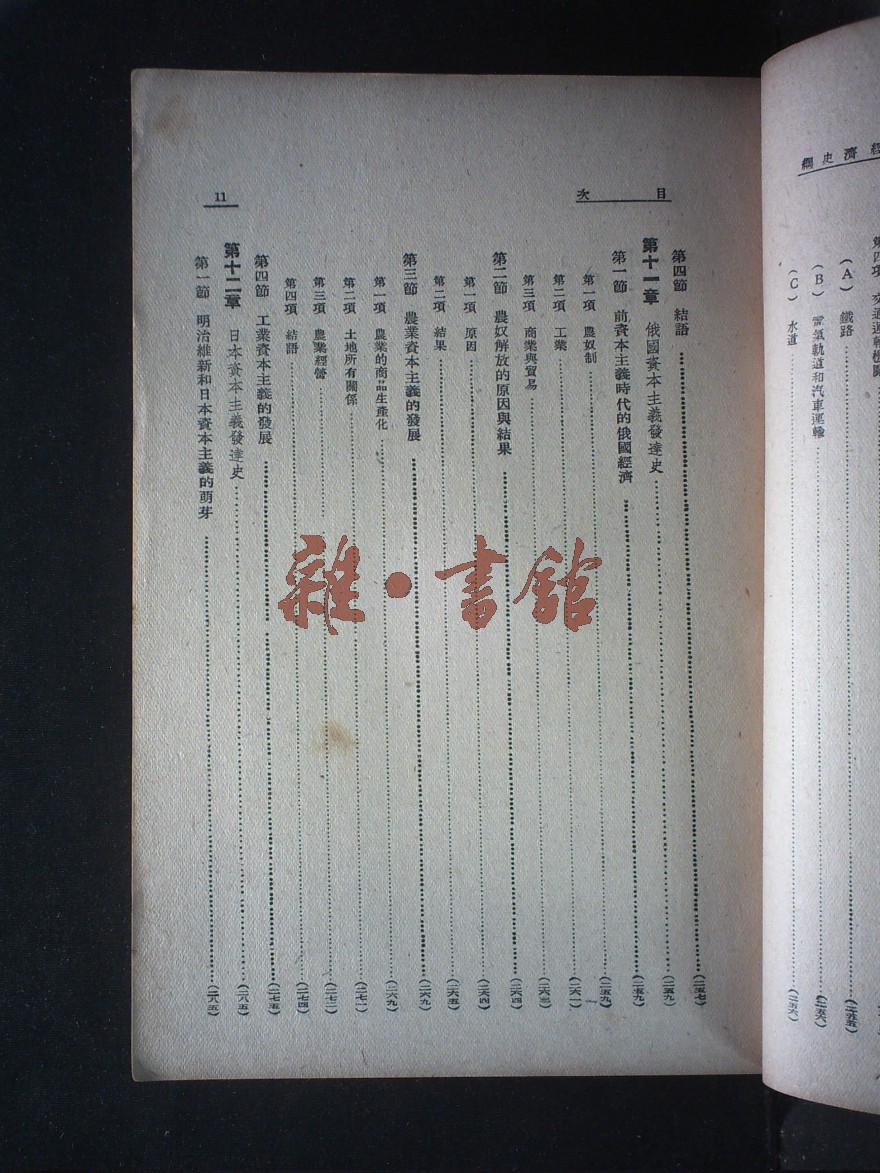 經濟史綱
第四項 交通運輸機關
(A) 鐵路……(二五五)
(B) 電氣軌道和汽車運輸……(二五六)
(C) 水道……(二五六)
目次
11
第四節 結語……(二五七)
第十一章 俄國資本主義發達史……(二五九)
第一節 前資本主義時代的俄國經濟……(二五九)
第一項 農奴制……(二五九)
第二項 工業……(二六一)
第三項 商業與貿易……(二六三)
第二節 農奴解放的原因與結果……(二六四)
第一項 原因……(二六四)
第二項 結果……(二六五)
第三節 農業資本主義的發展……(二六九)
第一項 農業的商品生產化……(二六九)
第二項 土地所有關係……(二七一)
第三項 農業經營……(二七二)
第四項 結語……(二七四)
第四節 工業資本主義的發展……(二七五)
第十二章 日本資本主義發達史……(二八五)
第一節 明治維新和日本資本主義的萌芽……(二八五)
雜·書館